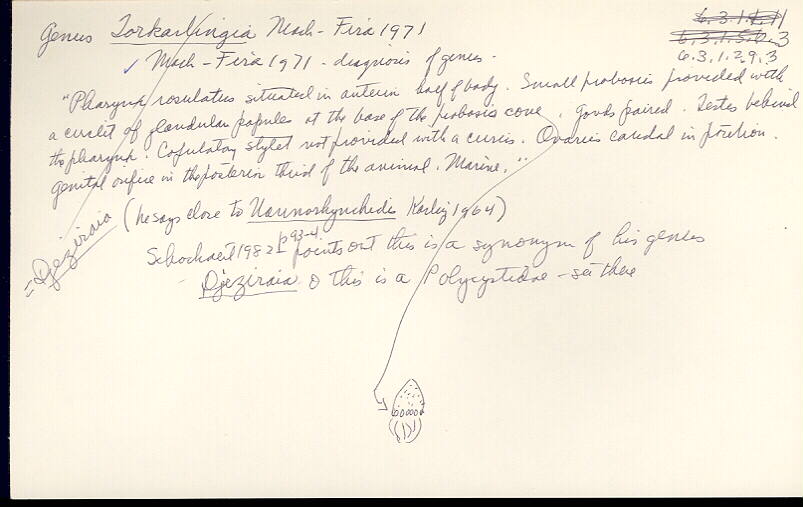 Genus Torkarlingia Mack-Fira 1971
6.3.1.1.11
6.3.1.5.6.3
6.3.1.29.3
✓ Mack-Fira 1971 - diagnosis of genus -
"Pharynx rosulatus situated in anterior half of body. Small proboscis provided with
a circlet of glandular papules at the base of the proboscis cone. Gonds paired. Testes behind
the pharynx. Copulatory stylet not provided with a cirrus. Ovaries caudal in position.
Genital orifice in the posterior third of the animal. Marine."
(he says close to Karling 1964)
= Djeziraia
Schockaert 1982 p 93-4 points out this is a synonym of his genus
Djeziraia & this is a Polycystidae - see there